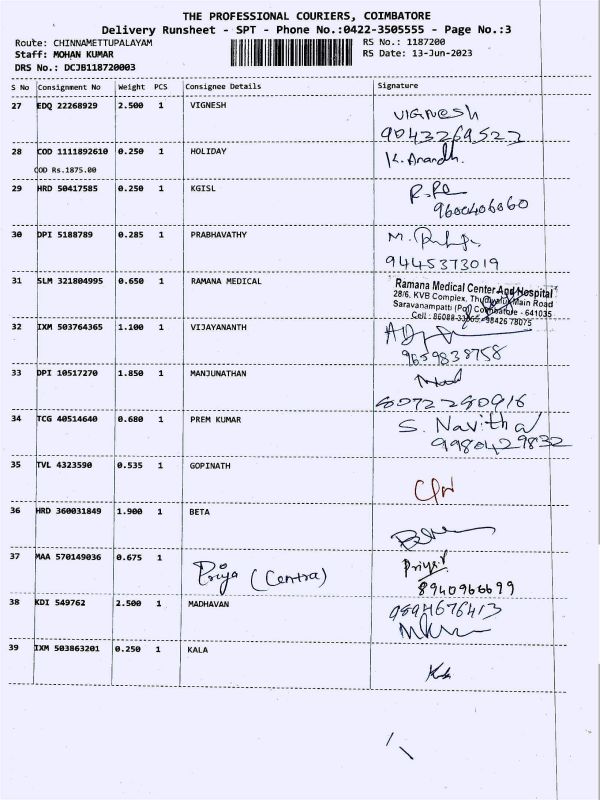 THE PROFESSIONAL COURIERS, COIMBATORE
Delivery Runsheet - SPT - Phone No.:0422-3505555 - Page No.:3
Route: CHINNAMETTUPALAYAM RS No.: 1187200
Staff: MOHAN KUMAR RS Date: 13-Jun-2023
DRS No.: DCJB118720003
S No Consignment No Weight PCS Consignee Details Signature
27 EDQ 22268929 2.500 1 VIGNESH VIGNESH
9043269523
28 COD 1111892610 0.250 1 HOLIDAY K. Anandh.
COD Rs.1875.00
29 HRD 50417585 0.250 1 KGISL
9600406060
30 DPI 5188789 0.285 1 PRABHAVATHY M.
9445373019
31 SLM 321804995 0.650 1 RAMANA MEDICAL Ramana Medical Center And Hospital
28/6, KVB Complex, Thudiyalur Main Road
Saravanampatti (Po) Coimbatore - 641035
Cell : 98426 78075
32 IXM 503764365 1.100 1 VIJAYANANTH
9659838758
33 DPI 10517270 1.850 1 MANJUNATHAN
8072280916
34 TCG 40514640 0.680 1 PREM KUMAR S. Navitha
9980429832
35 TVL 4323590 0.535 1 GOPINATH
36 HRD 360031849 1.900 1 BETA
37 MAA 570149036 0.675 1 Priya (Centra) Priya
8940966699
38 KDI 549762 2.500 1 MADHAVAN 9894676413
39 IXM 503863201 0.250 1 KALA